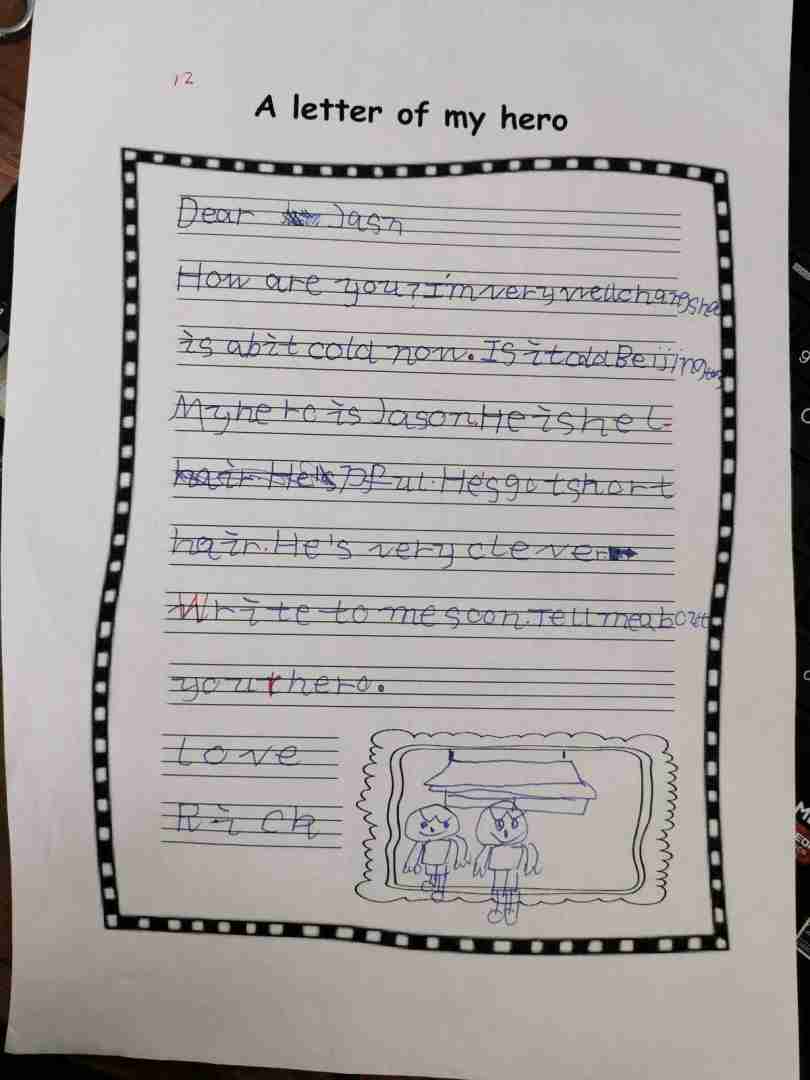 12
A letter of my hero
Dear Jasn
How are you? I'm very well changsha
is a bit cold now. Is it cold Beijing
My hero is Jason. He is hel-
hair. He's pful. He's got short
hair. He's very clever
Write to me soon. Tell me about
your hero.
Love
Rick